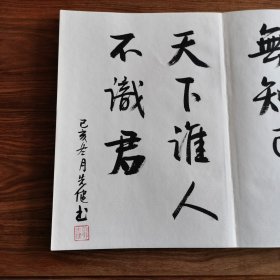 無知己
天下誰人
不識君
己亥冬月朱健書